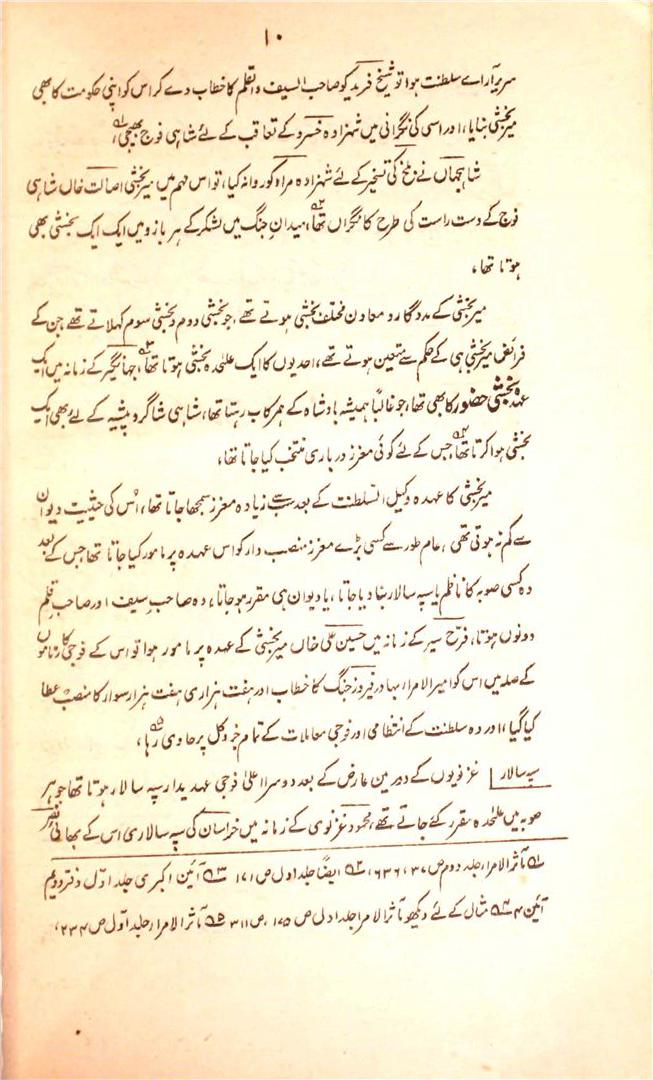 ۱۰
سریر آراے سلطنت ہوا تو شیخ فرید کو صاحب السیف والقلم کا خطاب دے کر اس کو اپنی حکومت کا بھی
میر بخشی بنایا، اور اسی کی نگرانی میں شہزادہ خسرو کے تعاقب کے لئے شاہی فوج بھیجی،
شاہجہاں نے بلخ کی تسخیر کے لئے شہزادہ مراد کو روانہ کیا، تو اس مہم میں میر بخشی اصالت خاں شاہی
فوج کے دست راست کی طرح کا نگراں تھا، میدانِ جنگ میں لشکر کے ہر بازو میں ایک ایک بخشی بھی
ہوتا تھا،
میر بخشی کے مددگار و معاون مختلف بخشی ہوتے تھے، جو بخشی دوم و بخشی سوم کہلاتے تھے جن کے
فرائض میر بخشی ہی کے حکم سے متعین ہوتے تھے، احدیوں کا ایک علٰحدہ بخشی ہوتا تھا، جہانگیر کے زمانہ میں ایک
عہدہ بخشی حضور کا بھی تھا، جو غالباً ہمیشہ بادشاہ کے ہمرکاب رہتا تھا، شاہی شاگرد پیشہ کے لئے بھی ایک
بخشی ہوا کرتا تھا، جس کے لئے کوئی معزز درباری منتخب کیا جاتا تھا،
میر بخشی کا عہدہ وکیل السلطنت کے بعد سب سے زیادہ معزز سمجھا جاتا تھا، اُس کی حیثیت دیوان
سے کم نہ ہوتی تھی، عام طور سے کسی بڑے معزز منصب دار کو اس عہدہ پر مامور کیا جاتا تھا جس کے بعد
وہ کسی صوبہ کا ناظم یا سپہ سالار بنا دیا جاتا، یا دیوان ہی مقرر ہو جاتا، وہ صاحبِ سیف اور صاحبِ قلم
دونوں ہوتا، فرخ سیر کے زمانہ میں حسین علی خاں میر بخشی کے عہدہ پر مامور ہوا تو اس کے فوجی کارناموں
کے صلہ میں اس کو امیر الامرا، بہادر فیروز جنگ کا خطاب اور ہفت ہزاری ہفت ہزار سوار کا منصب عطا
کیا گیا، اور وہ سلطنت کے انتظامی اور فوجی معاملات کے تمام جزو کل پر حاوی رہا،
سپہ سالار غزنویوں کے دور میں عارض کے بعد دوسرا اعلیٰ فوجی عہدیدار سپہ سالار ہوتا تھا جو ہر
صوبہ میں علٰحدہ مقرر کئے جاتے تھے، محمود غزنوی کے زمانہ میں خراسان کی سپہ سالاری اس کے بھائی نصر
۱؎ مآثر الامرا، جلد دوم ص ۳۷، ۶۳۶، ۲؎ ایضاً جلد اول ص ۱۷۱ ۳؎ آئین اکبری جلد اوّل دفتر دویم
آئین ۴ ۴؎ مثال کے لئے دیکھو مآثر الامرا جلد اول ص ۱۷۵، ص ۳۱۱ ۵؎ مآثر الامرا، جلد اوّل ص ۲۳۴،